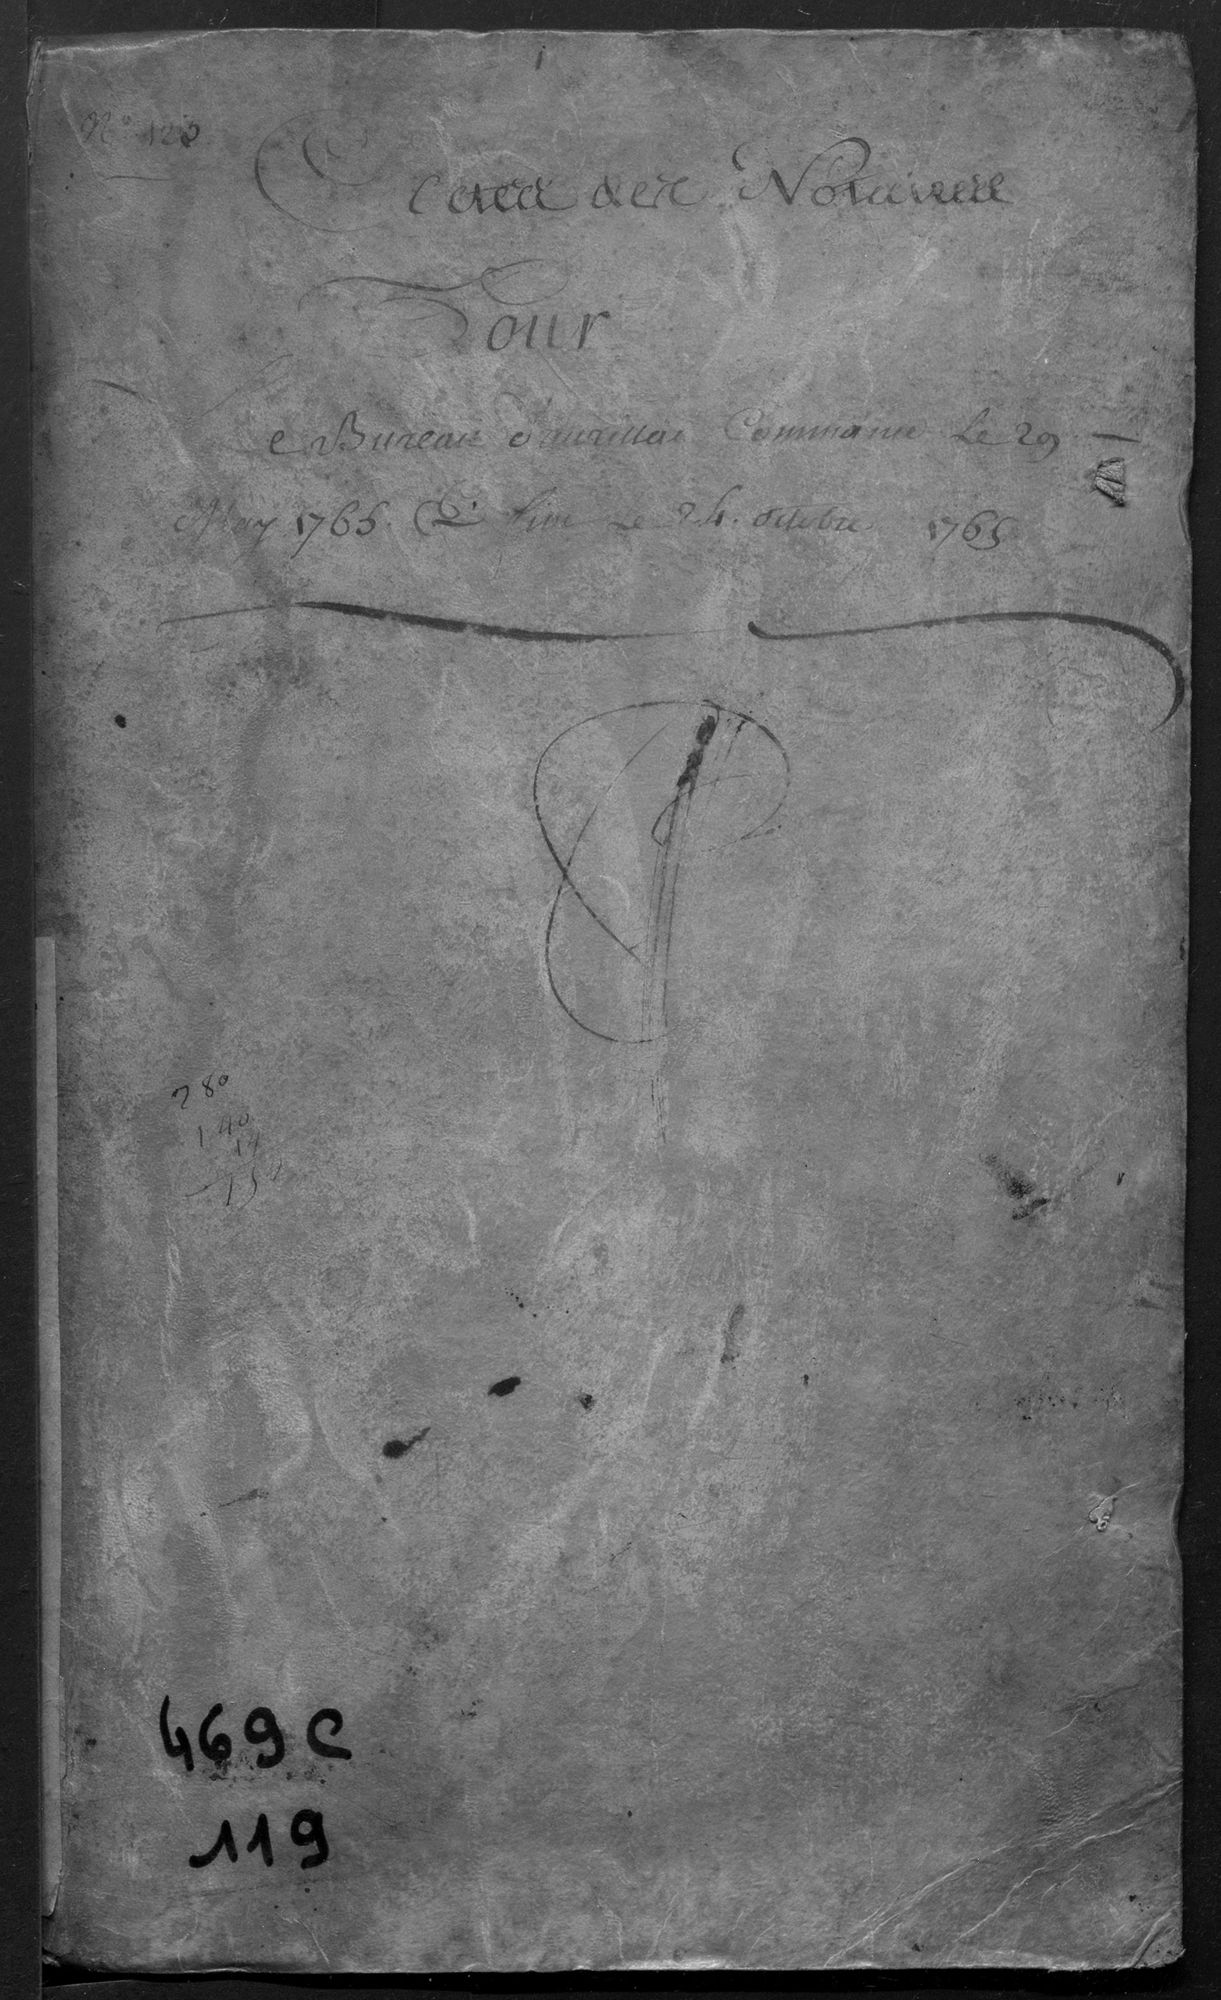 N.º 120
Actes des Notaires
Pour
Le Bureau d'aurillac Commancé Le 29
May 1765. Et finit Le 24. octobre 1765
280
140
14
15
469 C
119